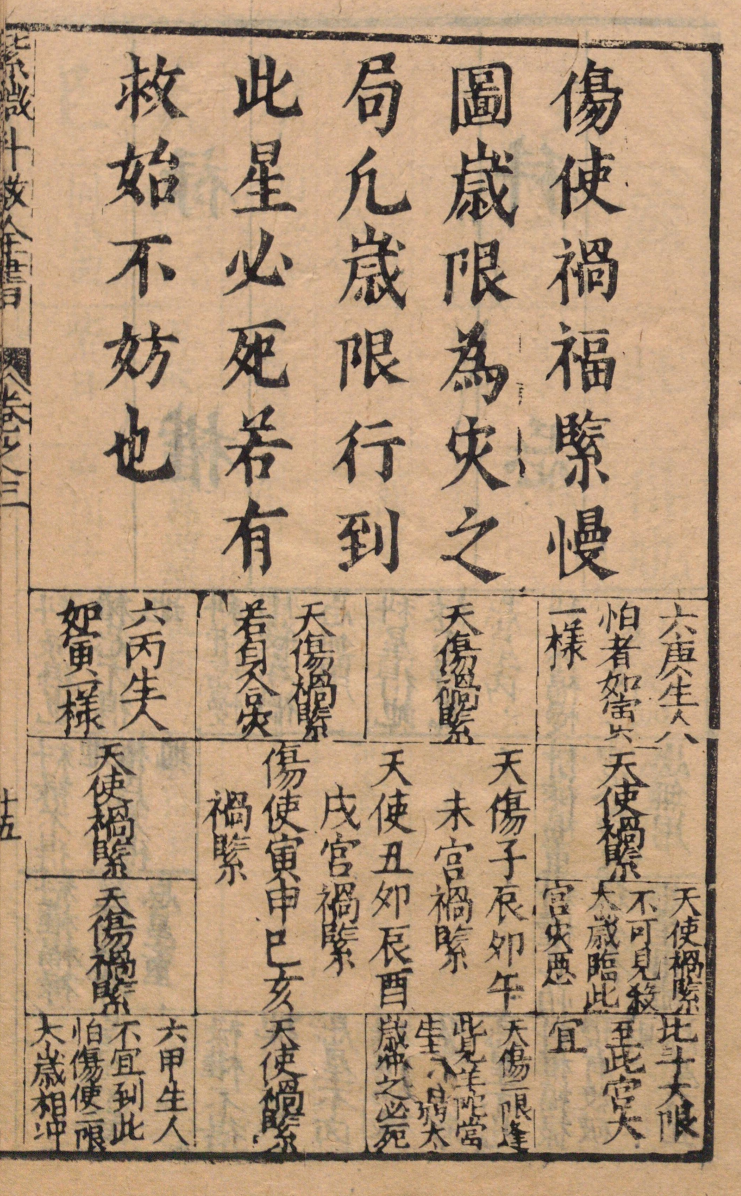 傷使禍福緊慢
圖歲限為灾之
局凢歲限行到
此星必死若有
救始不妨也
六庚生人
怕者如寅
一樣
天傷禍緊
天傷禍緊
若身合灾
六丙生人
如寅一樣
天使禍緊
天使禍緊
不可見殺
太歲臨此
宮灾惡
天傷子辰卯午
未宮禍緊
天使丑卯辰酉
戌宮禍緊
傷使寅申巳亥
禍緊
天使禍緊
天傷禍緊
比斗大限
至此宮大
宜
天傷二限逢
此見羊陀當
生人弱太
歲冲之必死
天使禍緊
六甲生人
不宜到此
怕傷使二限
太歲相冲
紫微斗數全書
卷之三
十五